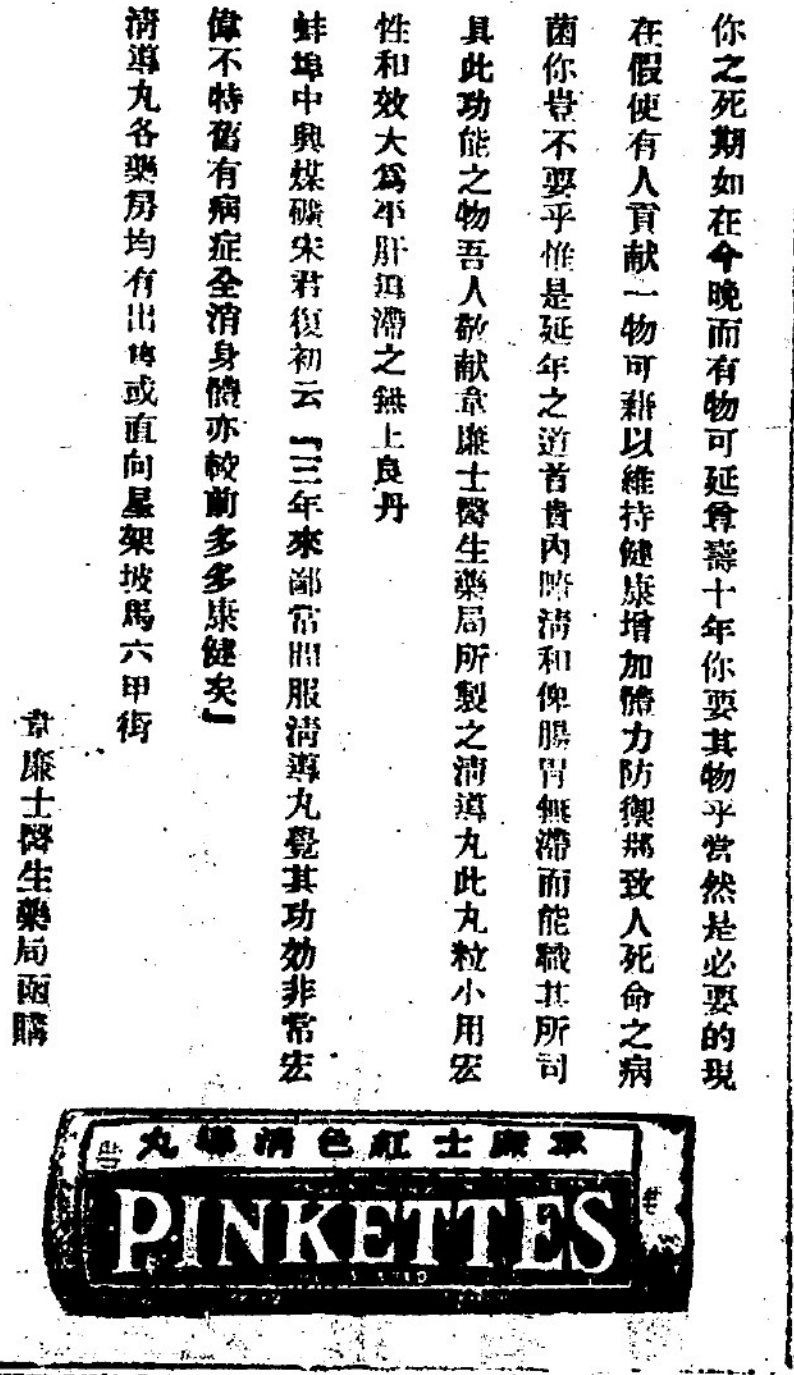 你之死期如在今晚而有物可延尊壽十年你要其物乎當然是必要的現
在假使有人貢献一物可藉以維持健康增加體力防禦將致人死命之病
菌你豈不要乎惟是延年之道首貴內臟清和俾腸胃無滯而能職其所司
具此功能之物吾人敬献韋廉士醫生藥局所製之清導丸此丸粒小用宏
性和效大爲平肝導滯之無上良丹
蚌埠中興煤礦宋君復初云『三年來鄙常服清導丸覺其功効非常宏
偉不特舊有病症全消身體亦較前多多康健矣』
清導丸各藥房均有出售或直向星架坡馬六甲街
韋廉士醫生藥局函購
丸導清色紅士廉韋
PINKETTES